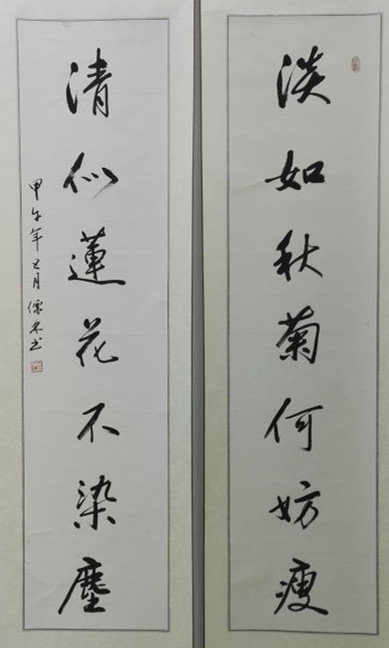 淡如秋菊何妨瘦
清似蓮花不染塵
甲午年五月儒東书